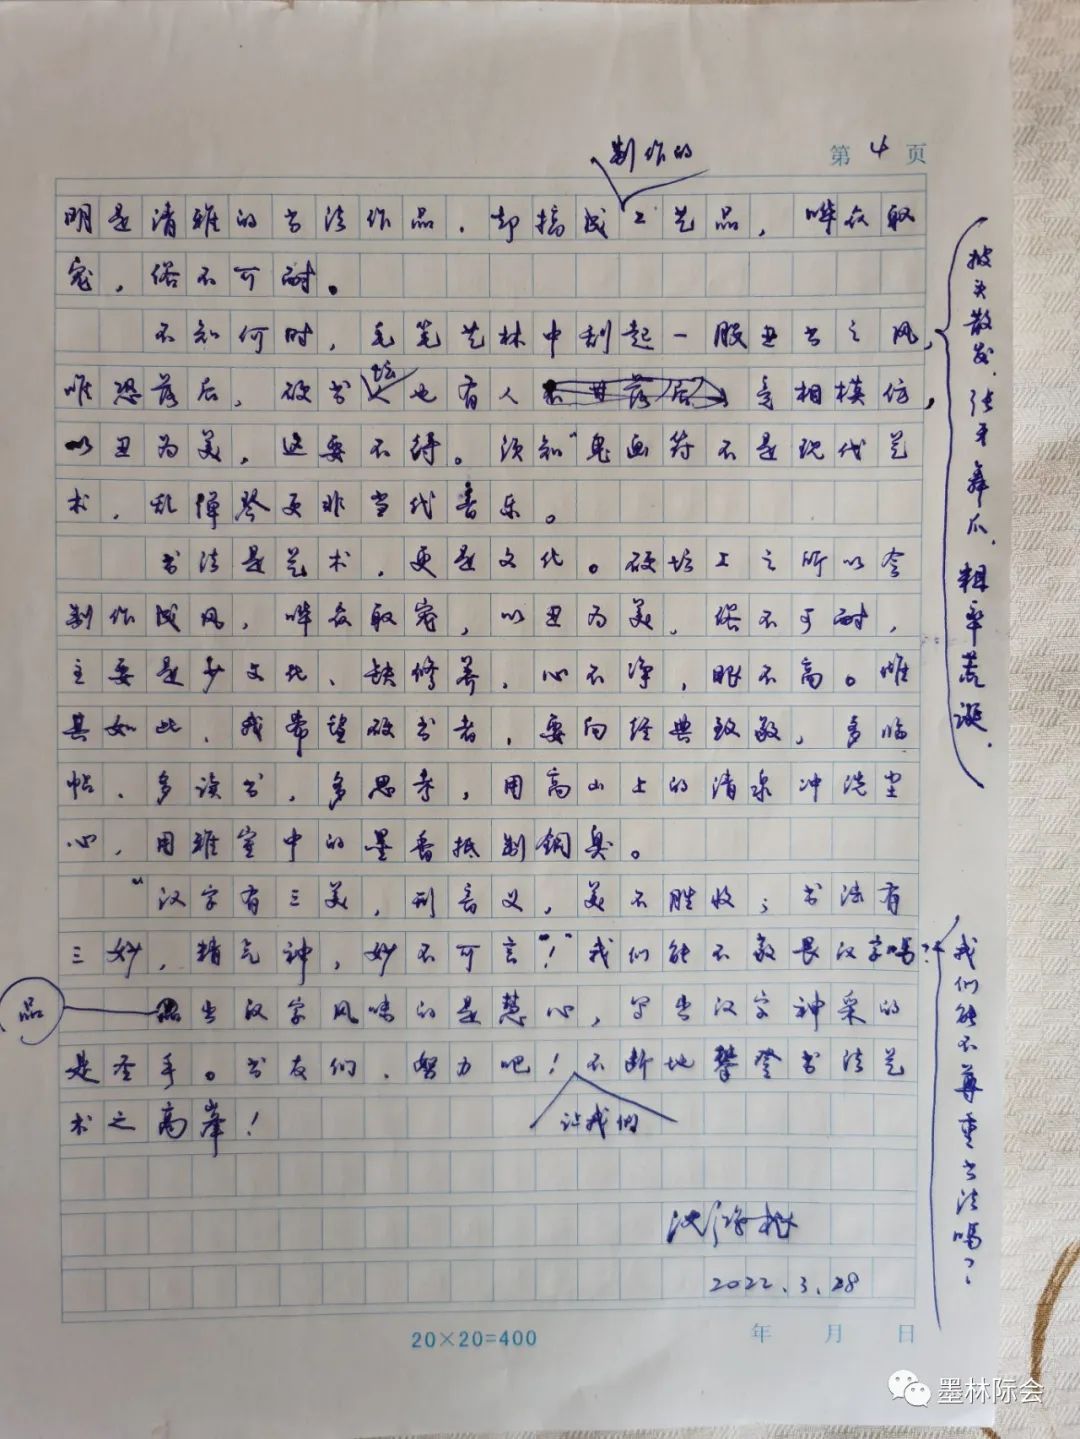 制作的
第4页
明是清雅的书法作品，却搞成工艺品，哗众取
宠，俗不可耐。
不知何时，毛笔艺林中刮起一股丑书之风，
唯恐落后，硬书坛也有人竞相模仿，
以丑为美，这要不得。须知"鬼画符不是现代艺
术，乱弹琴更非当代音乐。
书法是艺术，更是文化。硬坛上之所以会
制作成风，哗众取宠，以丑为美，俗不可耐，
主要是少文化、缺修养，心不净，眼不高。惟
其如此，我希望硬书者，要向经典致敬，多临
帖、多读书，多思考，用高山上的清泉冲洗尘
心，用雅室中的墨香抵制铜臭。
"汉字有三美，形音义，美不胜收；书法有
三妙，精气神，妙不可言"！"我们能不敬畏汉字吗？
品出汉字风味的是慧心，写出汉字神采的
是圣手。书友们，努力吧！不断地攀登书法艺
术之高峰！
让我们
披头散发，张牙舞爪，粗率荒诞，
我们能不尊重书法吗？
品
沈鸿根
2022.3.28
20×20=400
年 月 日
墨林际会